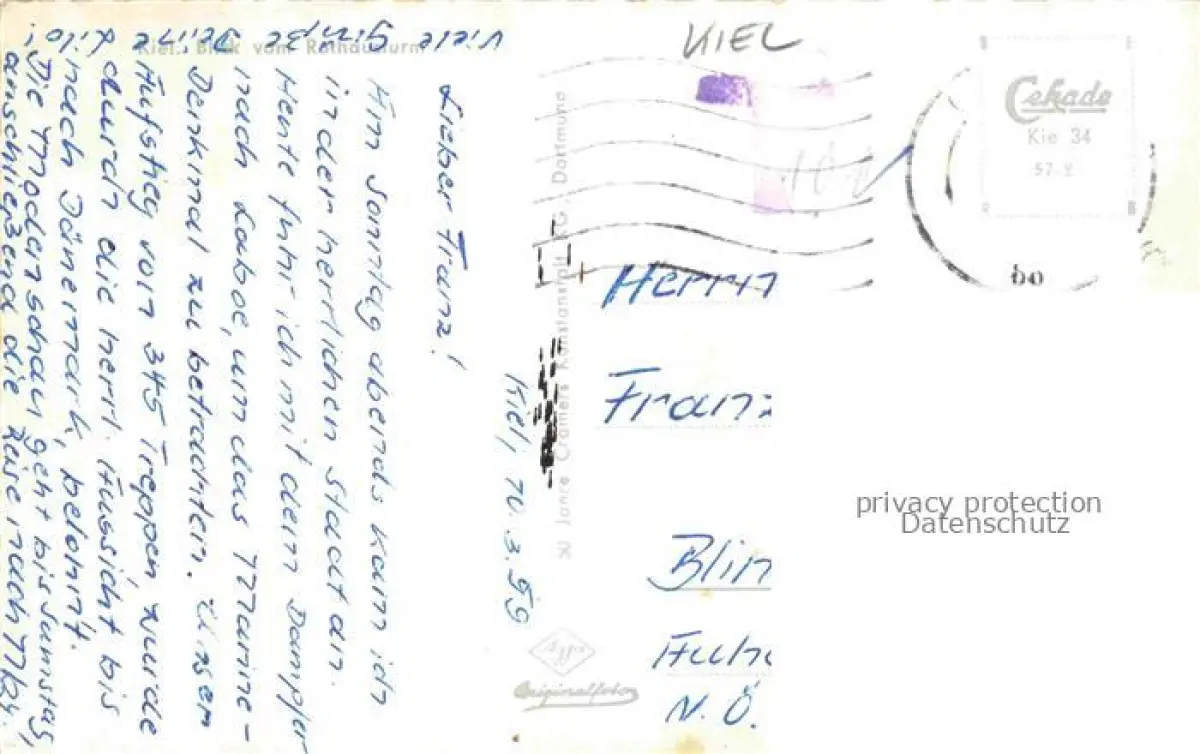 KIEL
Cekade
Kie 34
Kiel, Blick vom Rathausturm
50 Jahre Cramers Kunstanstalt KG, Dortmund
Kiel, 10.3.59
Lieber Franz!
Am Sonntag abends kam ich
in der herrlichen Stadt an.
Heute fuhr ich mit dem Dampfer
nach Laboe, um das Marine-
Denkmal zu betrachten. Unser
Aufstieg von 345 Treppen wurde
durch die herrl. Aussicht bis
nach Dänemark, belohnt.
Die Modenschau geht bis Samstag,
anschließend die Reise nach
Viele Grüße Deine
Lilo!
Herrn
Franz
Blin
N.Ö.
Agfa
Originalfoto
privacy protection
Datenschutz